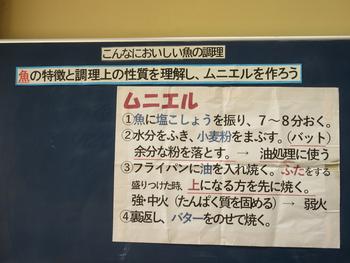 こんなにおいしい魚の調理
魚の特徴と調理上の性質を理解し、ムニエルを作ろう
ムニエル
①魚に塩こしょうを振り、7～8分おく。
②水分をふき、小麦粉をまぶす。（バット）
余分な粉を落とす。→ 油処理に使う
③フライパンに油を入れ焼く。ふたをする
盛りつけた時、上になる方を先に焼く。
強・中火（たんぱく質を固める）→ 弱火
④裏返し、バターをのせて焼く。